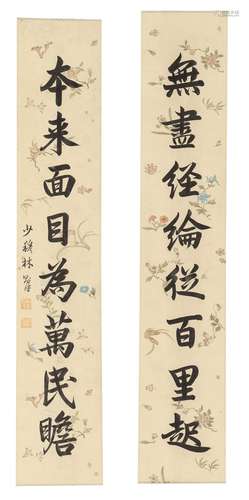 無盡經綸從百里起
本来面目為萬民瞻
少穆林